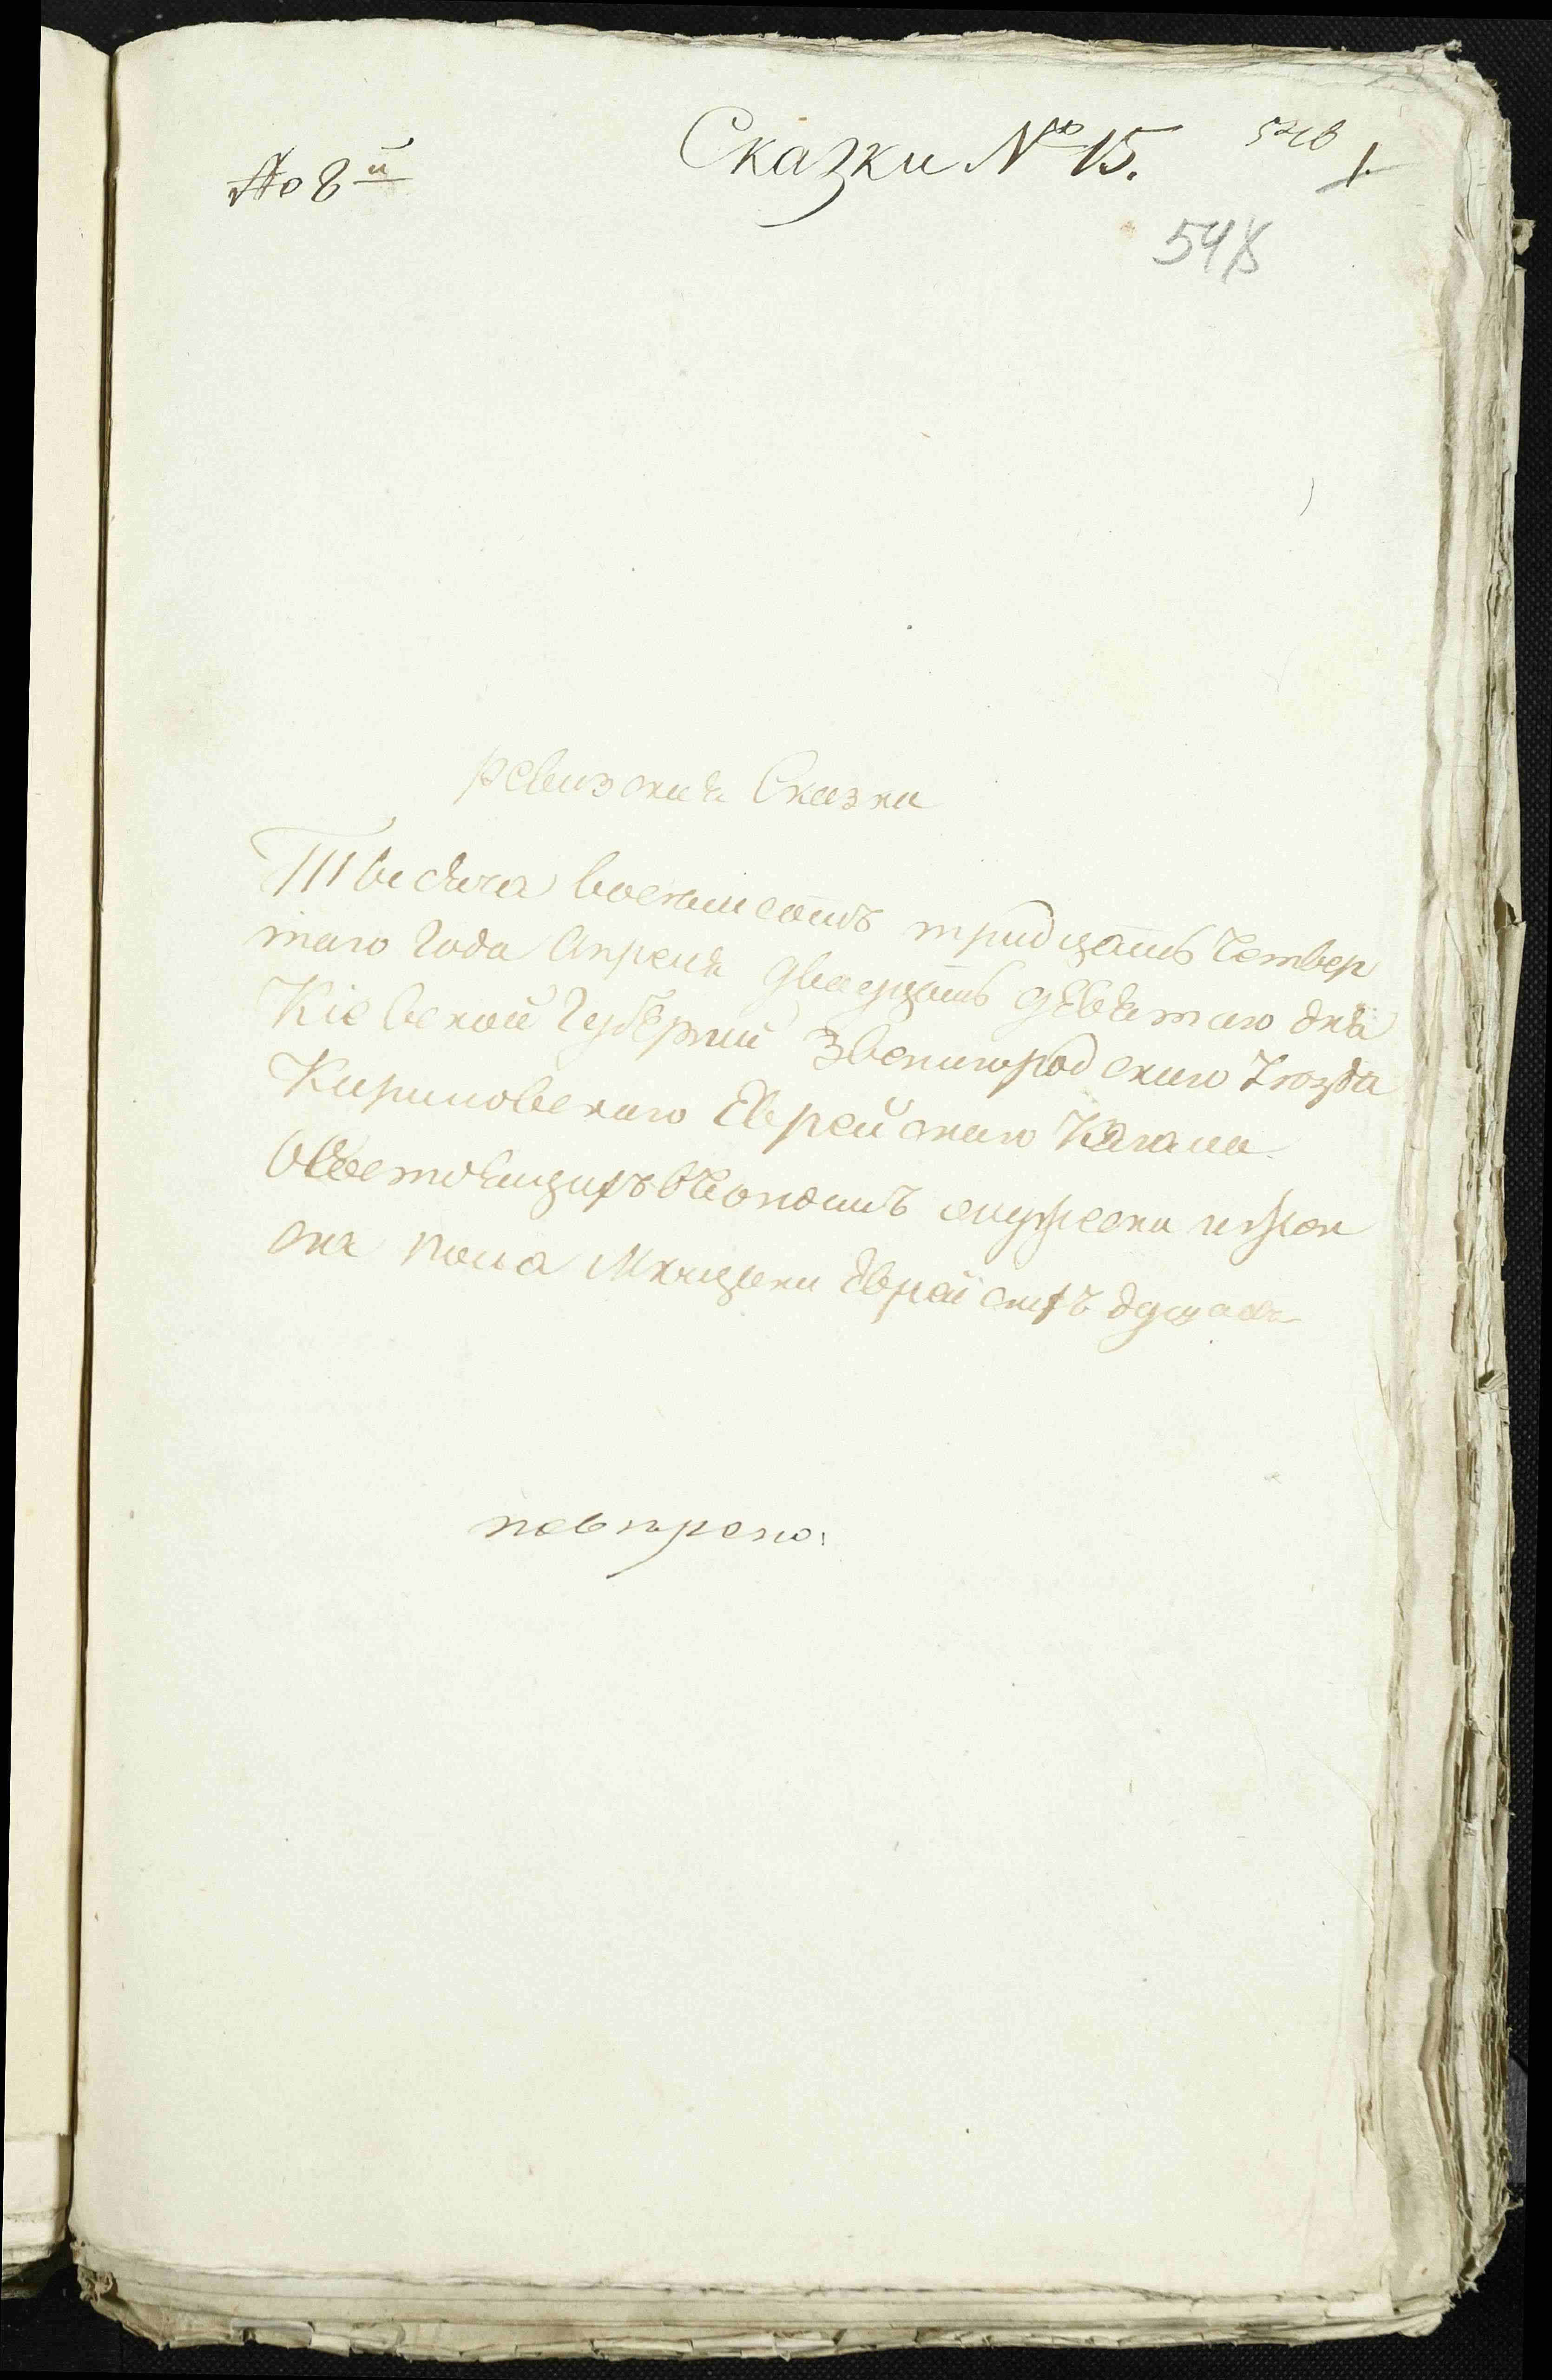 По 8й
Сказки № 15.
1.
548
ревизския Сказки
Тысяча восемьсотъ тридцать Четвер
таго Года Апреля двадцать девятаго дня
Кіевской Губерніи Звенигородскаго Уюзда
Кириловскаго Еврейскаго Кагала
О состоящихъ мужеска и жен
ска пола Мещани Еврейскихъ душахъ